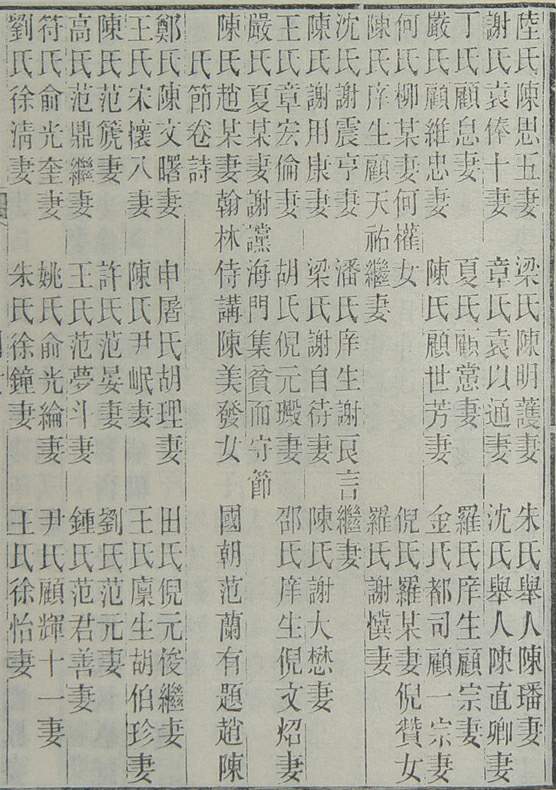 陸氏陳思五妻 梁氏陳明護妻 朱氏舉人陳璠妻
謝氏袁俸十妻 章氏袁以通妻 沈氏舉人陳直卿妻
丁氏顧息妻 夏氏顧憲妻 羅氏庠生顧宗妻
嚴氏顧維忠妻 陳氏顧世芳妻 金氏都司顧一宗妻
何氏柳某妻何權女 倪氏羅某妻倪贊女
陳氏庠生顧天祐繼妻 羅氏謝慎妻
沈氏謝震亨妻 潘氏庠生謝良言繼妻
陳氏謝用康妻 梁氏謝自待妻 陳氏謝大懋妻
王氏章宏倫妻 胡氏倪元瑖妻 邵氏庠生倪文炤妻
嚴氏夏某妻謝讜海門集貧而守節
陳氏趙某妻翰林侍講陳美發女 國朝范蘭有題趙陳
氏節卷詩
鄭氏陳文曙妻 申屠氏胡理妻 田氏倪元俊繼妻
王氏宋懷八妻 陳氏尹岷妻 王氏廩生胡伯珍妻
陳氏范箎妻 許氏范晏妻 劉氏范元妻
高氏范鼎繼妻 王氏范夢斗妻 鍾氏范君善妻
符氏俞光奎妻 姚氏俞光綸妻 尹氏顧輝十一妻
劉氏徐清妻 朱氏徐鐘妻 王氏徐怡妻